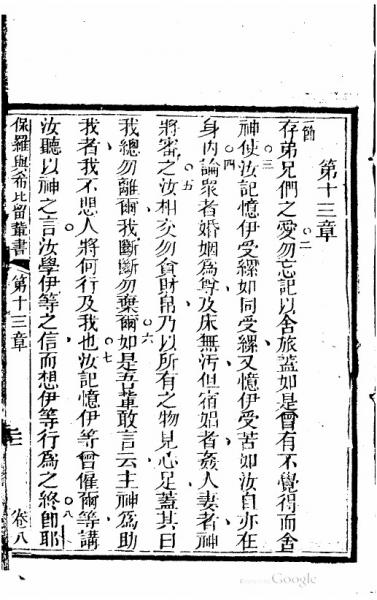 第十三章
飭
存弟兄們之愛勿忘記以舍旅蓋如是曾有不覺得而舍
神使汝記憶伊受縲如同受縲又憶伊受苦如汝自亦在
身內論眾者婚姻為尊及床無污但宿娼者姦人妻者神
將審之汝相交勿貪財帛乃以所有之物見心足蓋其曰
我總勿離爾我斷斷勿棄爾如是吾輩敢言云主神為助
我者我不思人將何行及我也汝記憶伊等曾催爾等講
汝聽以神之言汝學伊等之信而想伊等行為之終即耶
保羅與希比留輩書 第十三章 三 卷八
二
三
四
五
六
七
八
Google